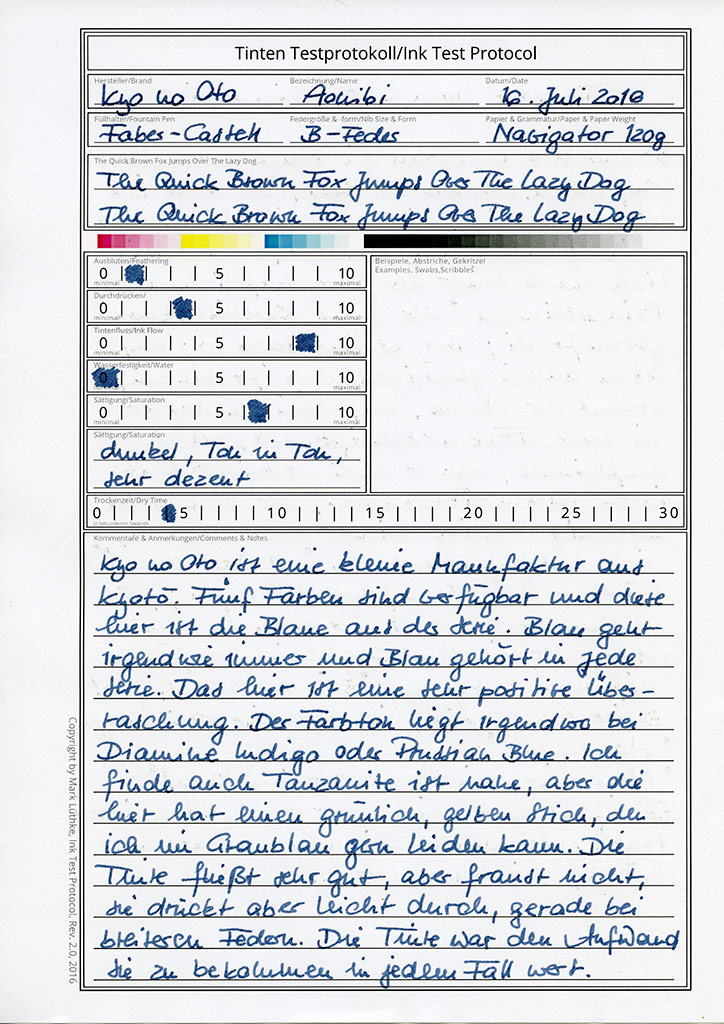 Tinten Testprotokoll/Ink Test Protocol
Hersteller/Brand Bezeichnung/Name Datum/Date
Kyo no Oto Aonibi 16. Juli 2016
Füllhalter/Fountain Pen Federgröße & -form/Nib Size & Form Papier & Grammatur/Paper & Paper Weight
Faber-Castell B-Feder Navigator 120g
The Quick Brown Fox Jumps Over The Lazy Dog
The Quick Brown Fox Jumps Over The Lazy Dog
The Quick Brown Fox Jumps Over The Lazy Dog
Ausbluten/Feathering
0 5 10
minimal maximal
Durchdrücken/
0 5 10
minimal maximal
Tintenfluss/Ink Flow
0 5 10
minimal maximal
Wasserfestigkeit/Water
0 5 10
minimal maximal
Sättigung/Saturation
0 5 10
minimal maximal
Sättigung/Saturation
dunkel, Ton in Ton,
sehr dezent
Beispiele, Abstriche, Gekritzel
Examples, Swabs,Scribbles
Trockenzeit/Dry Time
0 5 10 15 20 25 30
in Sekunden/in Seconds
Kommentare & Anmerkungen/Comments & Notes
Kyo no Oto ist eine kleine Manufaktur aus
Kyoto. Fünf Farben sind verfügbar und diese
hier ist die Blaue aus der Serie. Blau geht
irgendwie immer und Blau gehört in jede
Serie. Das hier ist eine sehr positive Über-
raschung. Der Farbton liegt irgendwo bei
Diamine Indigo oder Prussian Blue. Ich
finde auch Tanzanite ist nahe, aber die
hier hat einen grünlich, gelben Stich, den
ich im Graublau gern leiden kann. Die
Tinte fließt sehr gut, aber franst nicht,
sie drückt aber leicht durch, gerade bei
breiteren Federn. Die Tinte war den Aufwand
sie zu bekommen in jedem Fall wert.
Copyright by Mark Lüthke, Ink Test Protocol, Rev. 2.0, 2016